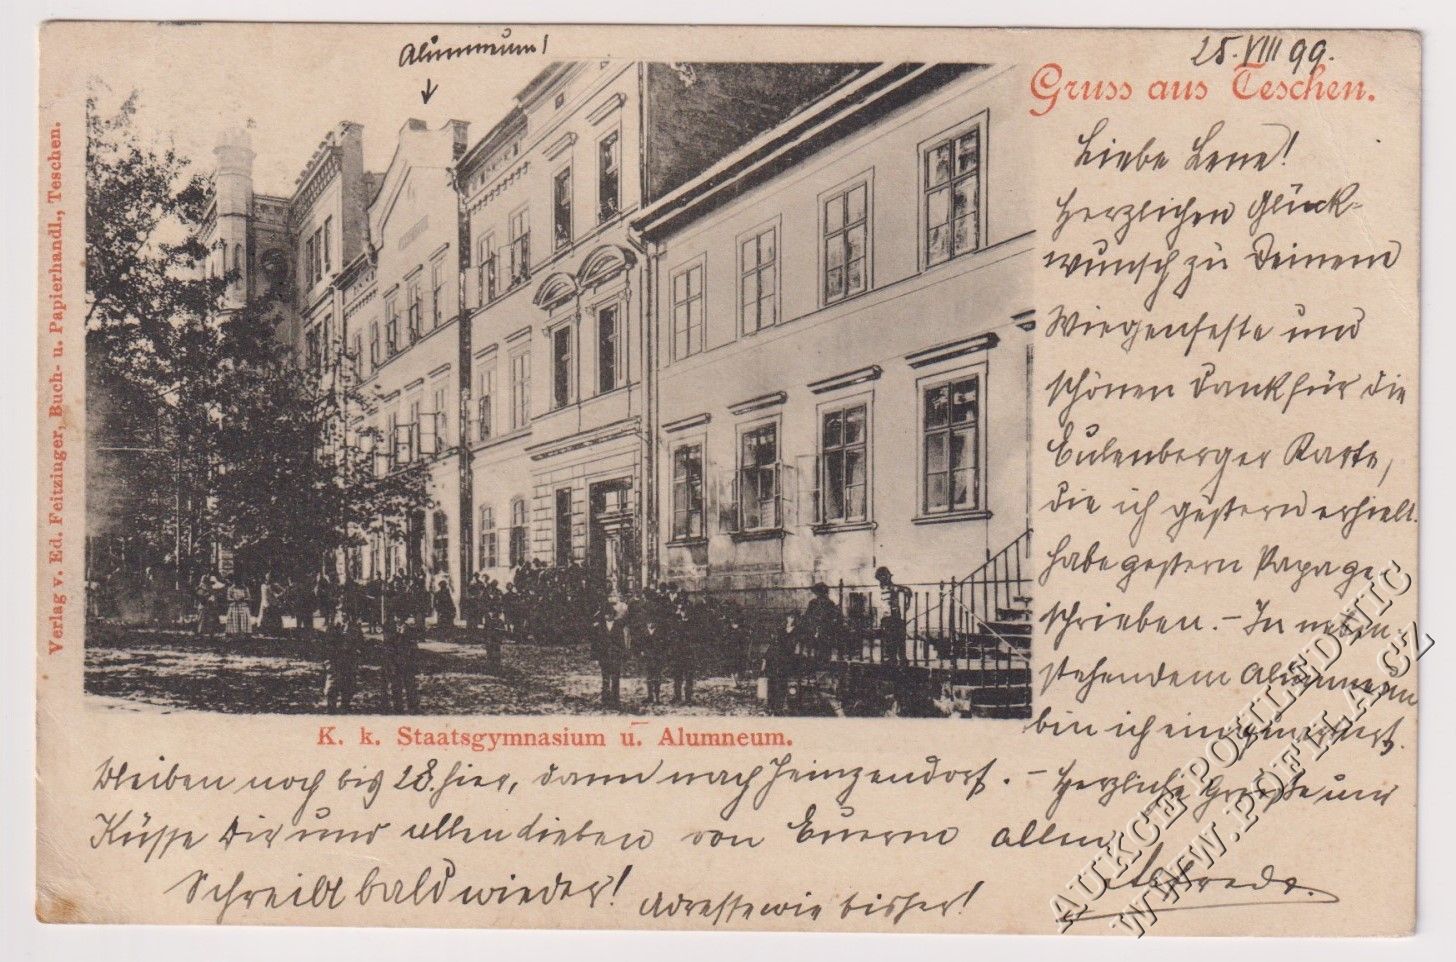 Alumneum!
25. VIII 99.
Gruss aus Teschen.
Liebe Lene!
Herzlichen Glück-
wunsch zu Deinem
Wiegenfeste und
schönen Dank für die
Eulenberger Karte,
die ich gestern erhielt.
habe gestern Papa ge-
schrieben. – In neben-
stehendem Alumneum
bin ich einquartiert.
Bleiben noch bis 28. hier, dann nach Heinzendorf. – Herzliche Grüße und
Küsse Dir und allen Lieben von Euerm allen
Schreibt bald wieder! Adresse wie bisher!
K. k. Staatsgymnasium u. Alumneum.
Verlag v. Ed. Feitzinger, Buch- u. Papierhandl., Teschen.
AUKCE POHLEDNIC
WWW.POFILA.CZ